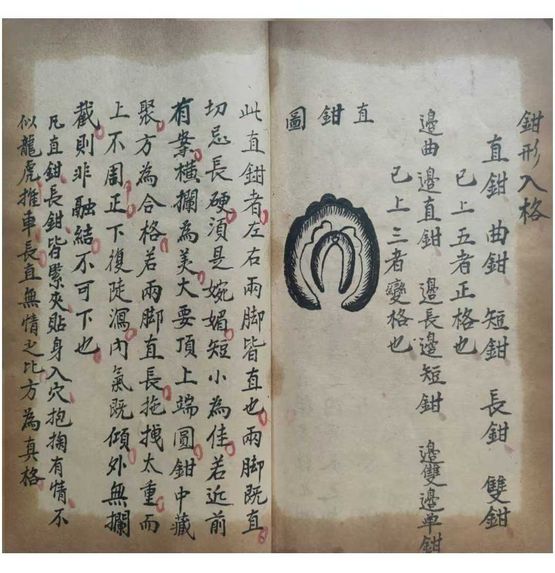 鉗形入格
直鉗 曲鉗 短鉗 長鉗 雙鉗
已上五者正格也
邊曲邊直鉗 邊長邊短鉗 邊雙邊单鉗
已上三者變格也
直鉗圖
此直鉗者左右兩脚皆直也兩脚既直
切忌長硬須是婉媚短小為佳若近前
有案橫攔為美大要頂上端圓鉗中藏
聚方為合格若兩脚直長拖拽太重而
上不周正下復陡瀉內氣既傾外無攔
截則非融結不可下也
凡直鉗長鉗皆緊夾貼身入穴抱掬有情不
似龍虎推車長直無情之比方為真格